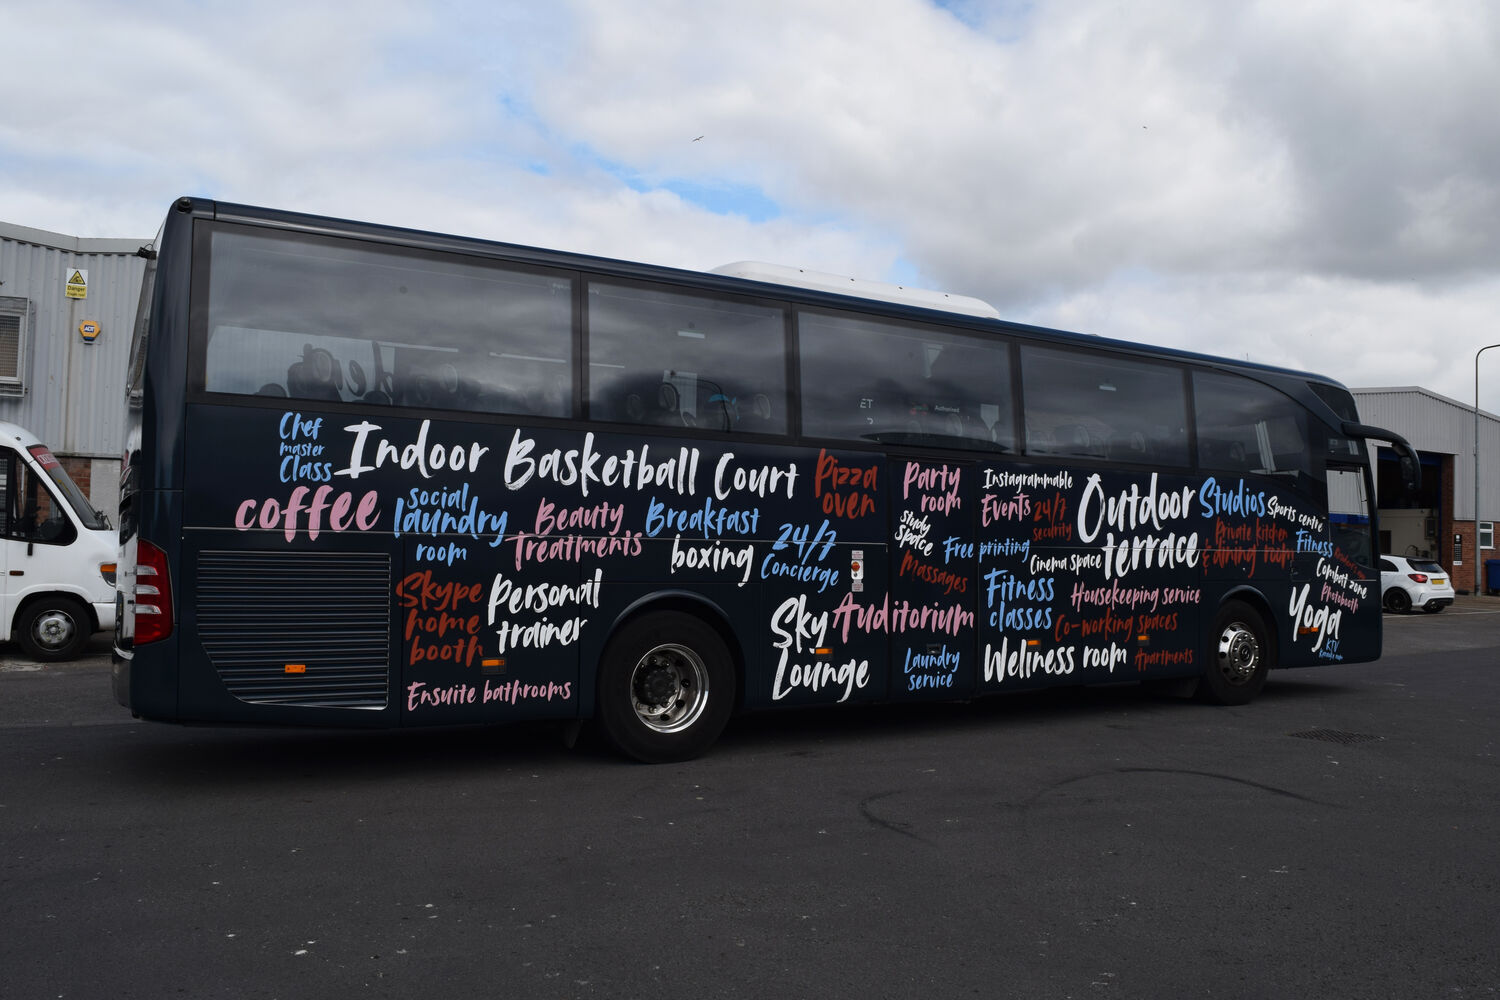 Danger
ADT
Chef
master
Class
Indoor Basketball Court
Pizza
oven
coffee
social
laundry
room
Beauty
Treatments
Breakfast
boxing
24/7
Concierge
Skype
home
booth
Personal
trainer
Ensuite bathrooms
Sky
Lounge
Auditorium
Party
room
Study
space
Free printing
Massages
Laundry
service
Instagrammable
Events
24/7
security
Cinema space
Outdoor
terrace
Fitness
classes
Housekeeping service
Co-working spaces
Wellness room
Apartments
Studios
Sports centre
Private kitchen
& dining room
Fitness
Combat zone
Photobooth
Yoga
KTV